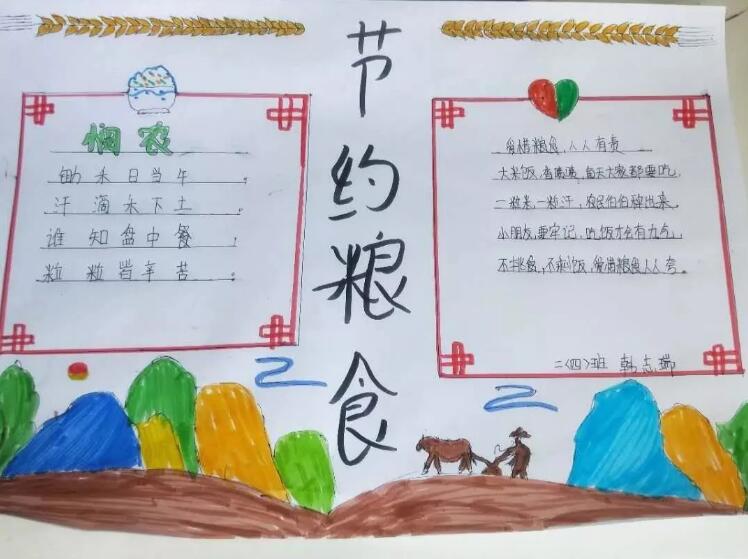 节约粮食
悯农
锄禾日当午，
汗滴禾下土。
谁知盘中餐，
粒粒皆辛苦。
爱惜粮食，人人有责
大米饭，香喷喷，每天大家都要吃，
一粒米，一粒汗，农民伯伯种出来，
小朋友，要牢记，吃饭才会有力气，
不挑食，不剩饭，爱惜粮食人人夸。
二(四)班 韩志瑞